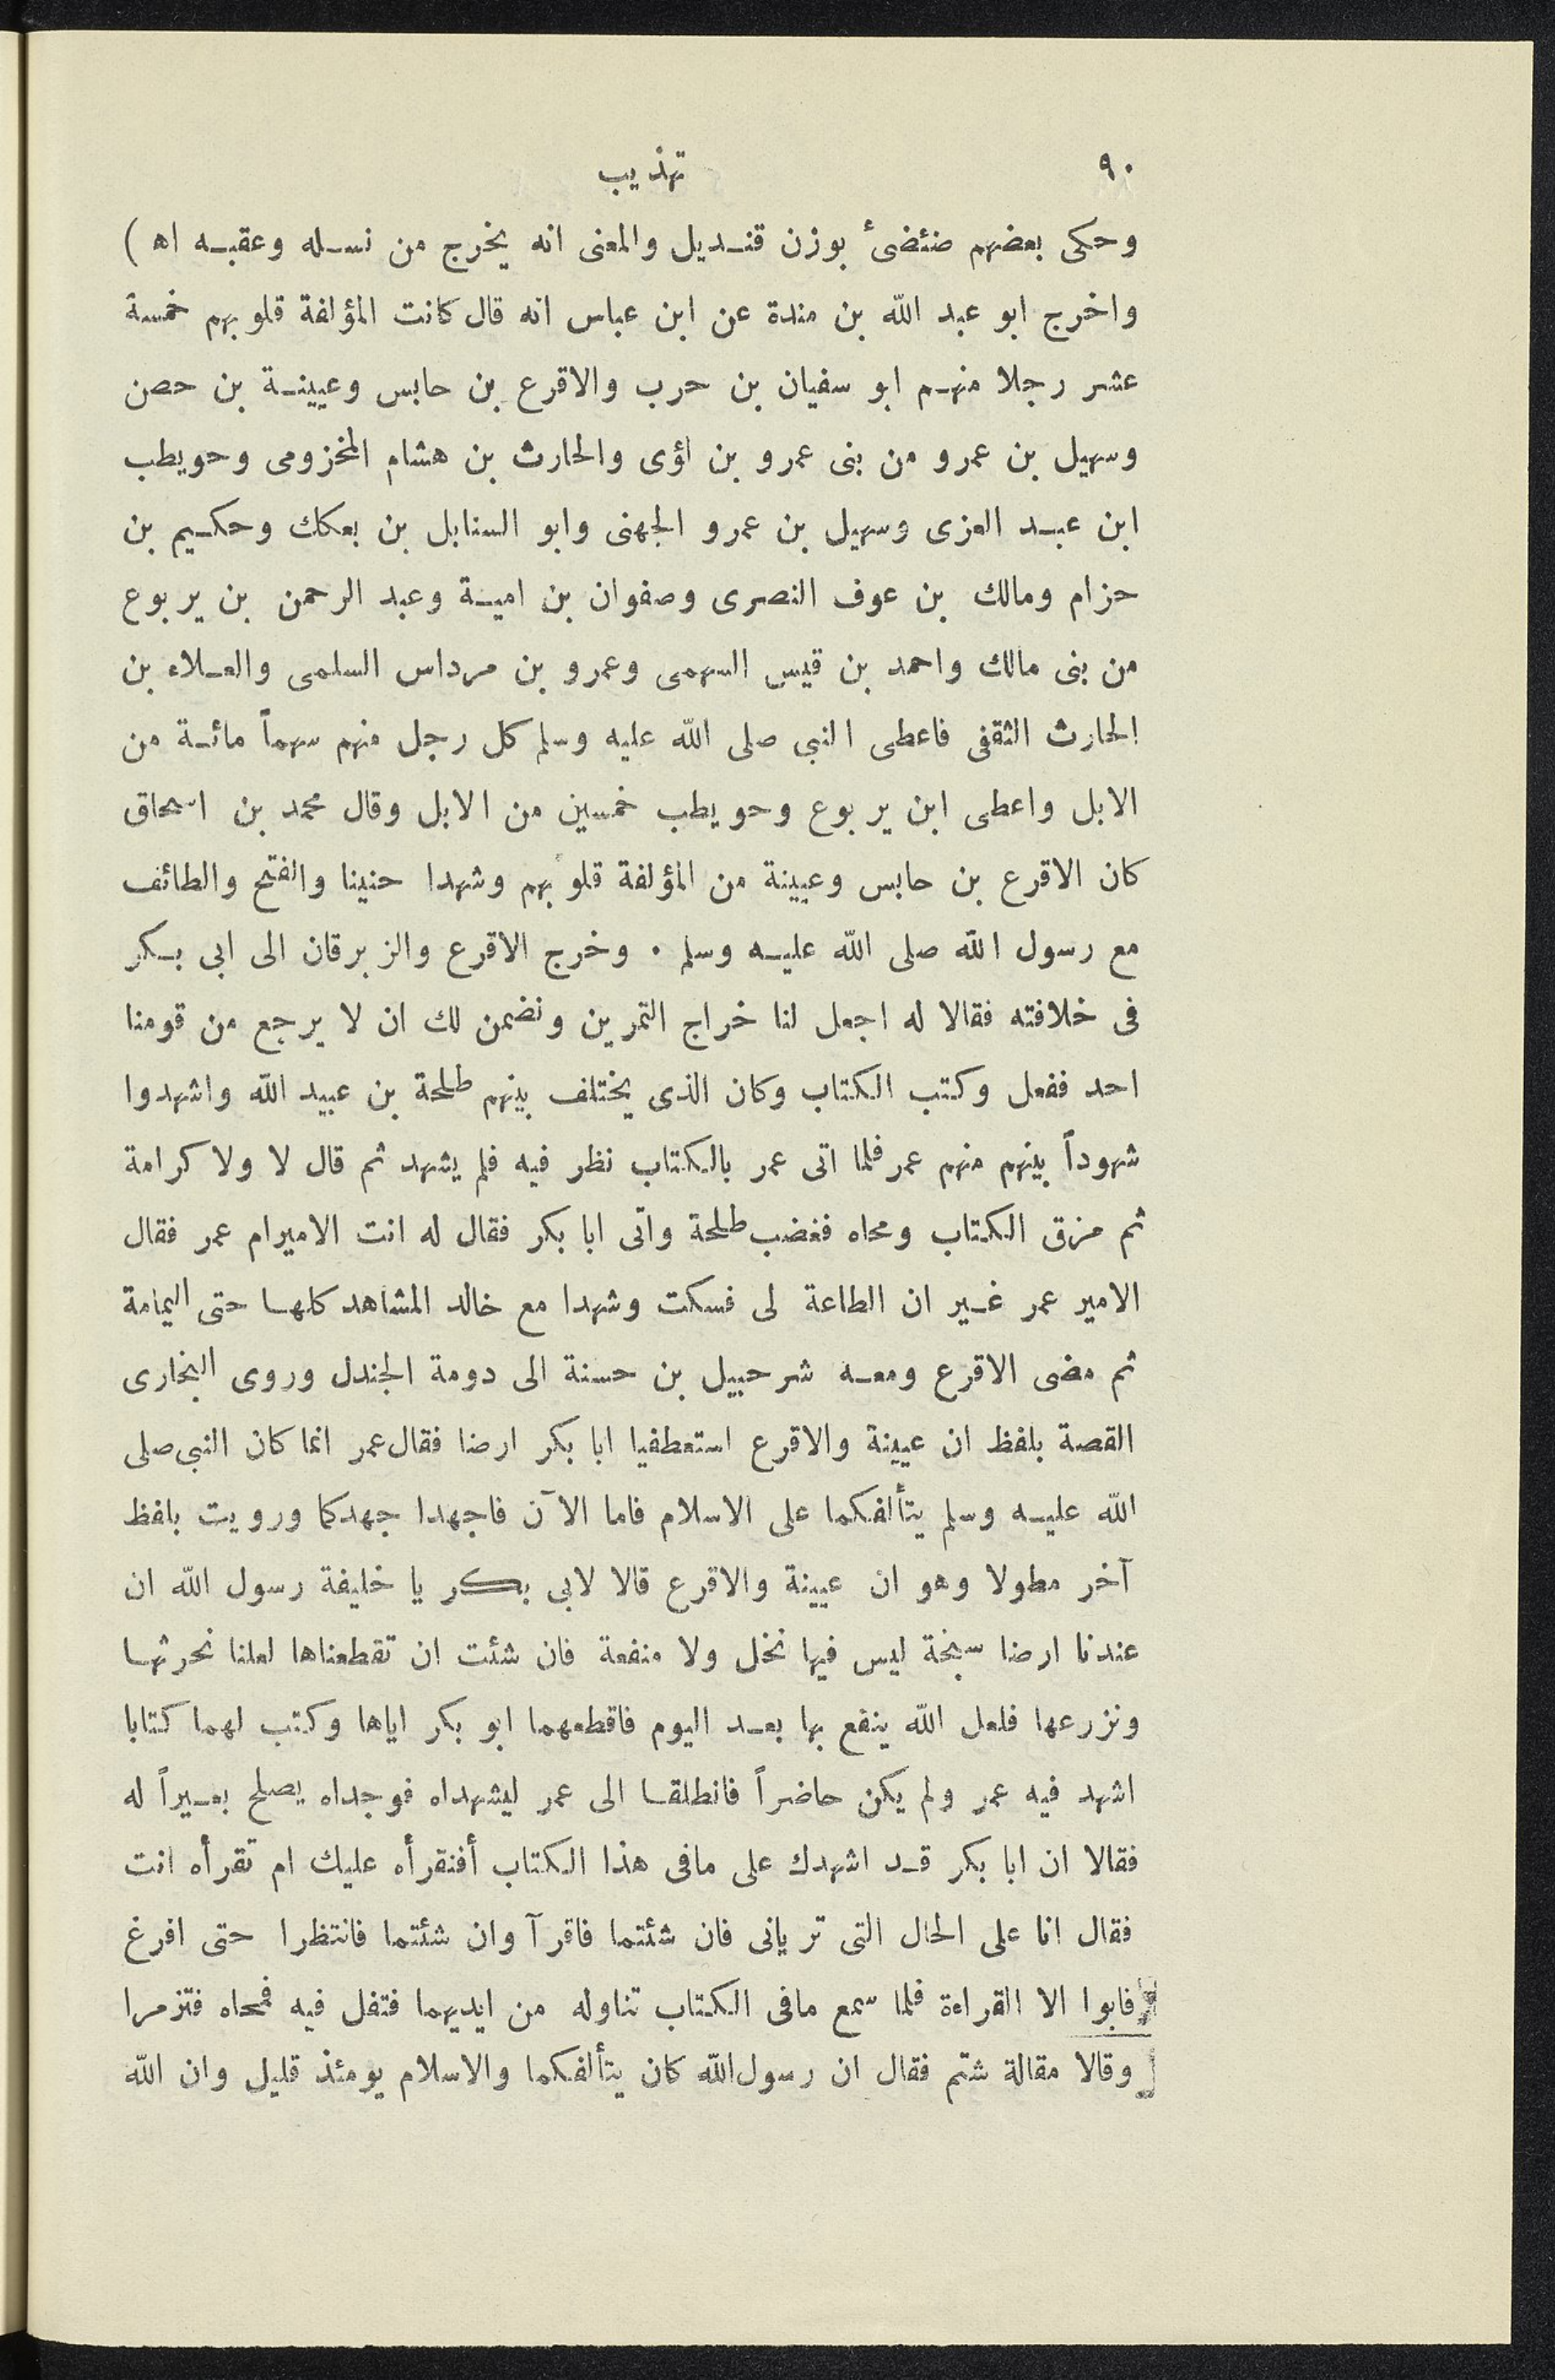 ٩٠
تهذيب
وحكى بعضهم ضئضئ بوزن قنديل والمعنى انه يخرج من نسله وعقبه اه )
واخرج ابو عبد الله بن مندة عن ابن عباس انه قال كانت المؤلفة قلوبهم خمسة
عشر رجلا منهم ابو سفيان بن حرب والاقرع بن حابس وعيينة بن حصن
وسهيل بن عمرو من بنى عمرو بن لؤى والحارث بن هشام المخزومى وحويطب
ابن عبد العزى وسهيل بن عمرو الجهنى وابو السنابل بن بعكك وحكيم بن
حزام ومالك بن عوف النصرى وصفوان بن امية وعبد الرحمن بن يربوع
من بنى مالك واحمد بن قيس السهمى وعمرو بن مرداس السلمى والعلاء بن
الحارث الثقفى فاعطى النبى صلى الله عليه وسلم كل رجل منهم سهماً مائة من
الابل واعطى ابن يربوع وحويطب خمسين من الابل وقال محمد بن اسحاق
كان الاقرع بن حابس وعيينة من المؤلفة قلوبهم وشهدا حنينا والفتح والطائف
مع رسول الله صلى الله عليه وسلم . وخرج الاقرع والزبرقان الى ابى بكر
فى خلافته فقالا له اجعل لنا خراج التمرين ونضمن لك ان لا يرجع من قومنا
احد ففعل وكتب الكتاب وكان الذى يختلف بينهم طلحة بن عبيد الله واشهدوا
شهوداً بينهم منهم عمر فلما اتى عمر بالكتاب نظر فيه فلم يشهد ثم قال لا ولا كرامة
ثم مزق الكتاب ومحاه فغضب طلحة واتى ابا بكر فقال له انت الاميرام عمر فقال
الامير عمر غير ان الطاعة لى فسكت وشهدا مع خالد المشاهد كلها حتى اليمامة
ثم مضى الاقرع ومعه شرحبيل بن حسنة الى دومة الجندل وروى البخارى
القصة بلفظ ان عيينة والاقرع استعطفيا ابا بكر ارضا فقال عمر انما كان النبى صلى
الله عليه وسلم يتألفكما على الاسلام فاما الآن فاجهدا جهدكما ورويت بلفظ
آخر مطولا وهو ان عيينة والاقرع قالا لابى بكر يا خليفة رسول الله ان
عندنا ارضا سبخة ليس فيها نخل ولا منفعة فان شئت ان تقطعناها لعلنا نحرثها
ونزرعها فلعل الله ينفع بها بعد اليوم فاقطعهما ابو بكر اياها وكتب لهما كتابا
اشهد فيه عمر ولم يكن حاضراً فانطلقا الى عمر ليشهداه فوجداه يصلح بعيراً له
فقالا ان ابا بكر قد اشهدك على مافى هذا الكتاب أفنقرأه عليك ام تقرأه انت
فقال انا على الحال التى تريانى فان شئتما فاقرآ وان شئتما فانتظرا حتى افرغ
فابوا الا القراءة فلما سمع مافى الكتاب تناوله من ايديهما فتفل فيه فمحاه فتزمرا
وقالا مقالة شتم فقال ان رسول الله كان يتألفكما والاسلام يومئذ قليل وان الله